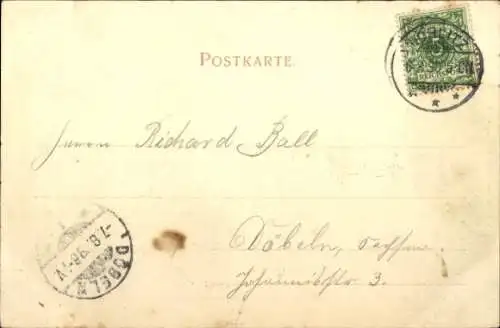 POSTKARTE.
5
Herrn Richard Ball
Döbeln, Sachsen
Johannisstr 3.
DÖBELN
-7.8.98.